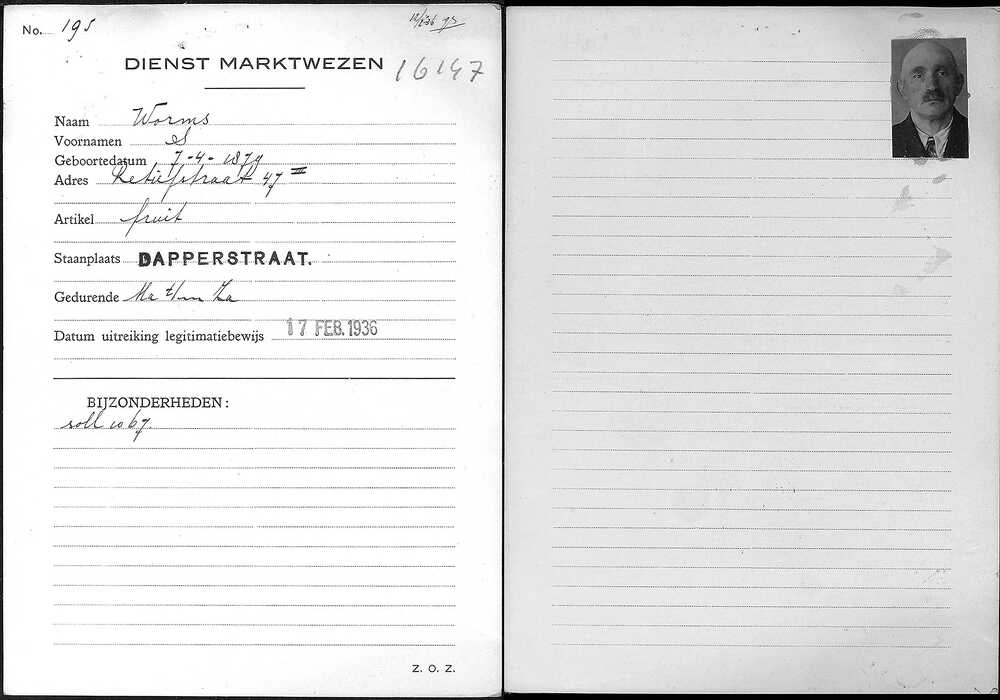 No. 195
DIENST MARKTWEZEN 16147
Naam Worms
Voornamen S
Geboortedatum 7-4-1879
Adres Retiefstraat 47 III
Artikel fruit
Staanplaats DAPPERSTRAAT.
Gedurende Ma t/m Za
Datum uitreiking legitimatiebewijs 17 FEB. 1936
BIJZONDERHEDEN:
soll 1067
Z. O. Z.